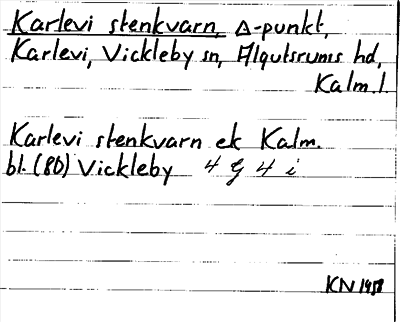 Karlevi stenkvarn, Δ-punkt,
Karlevi, Vickleby sn, Algutsrums hd,
Kalm.l.
Karlevi stenkvarn ek Kalm.
bl. (80) Vickleby 4 G 4 i
KN